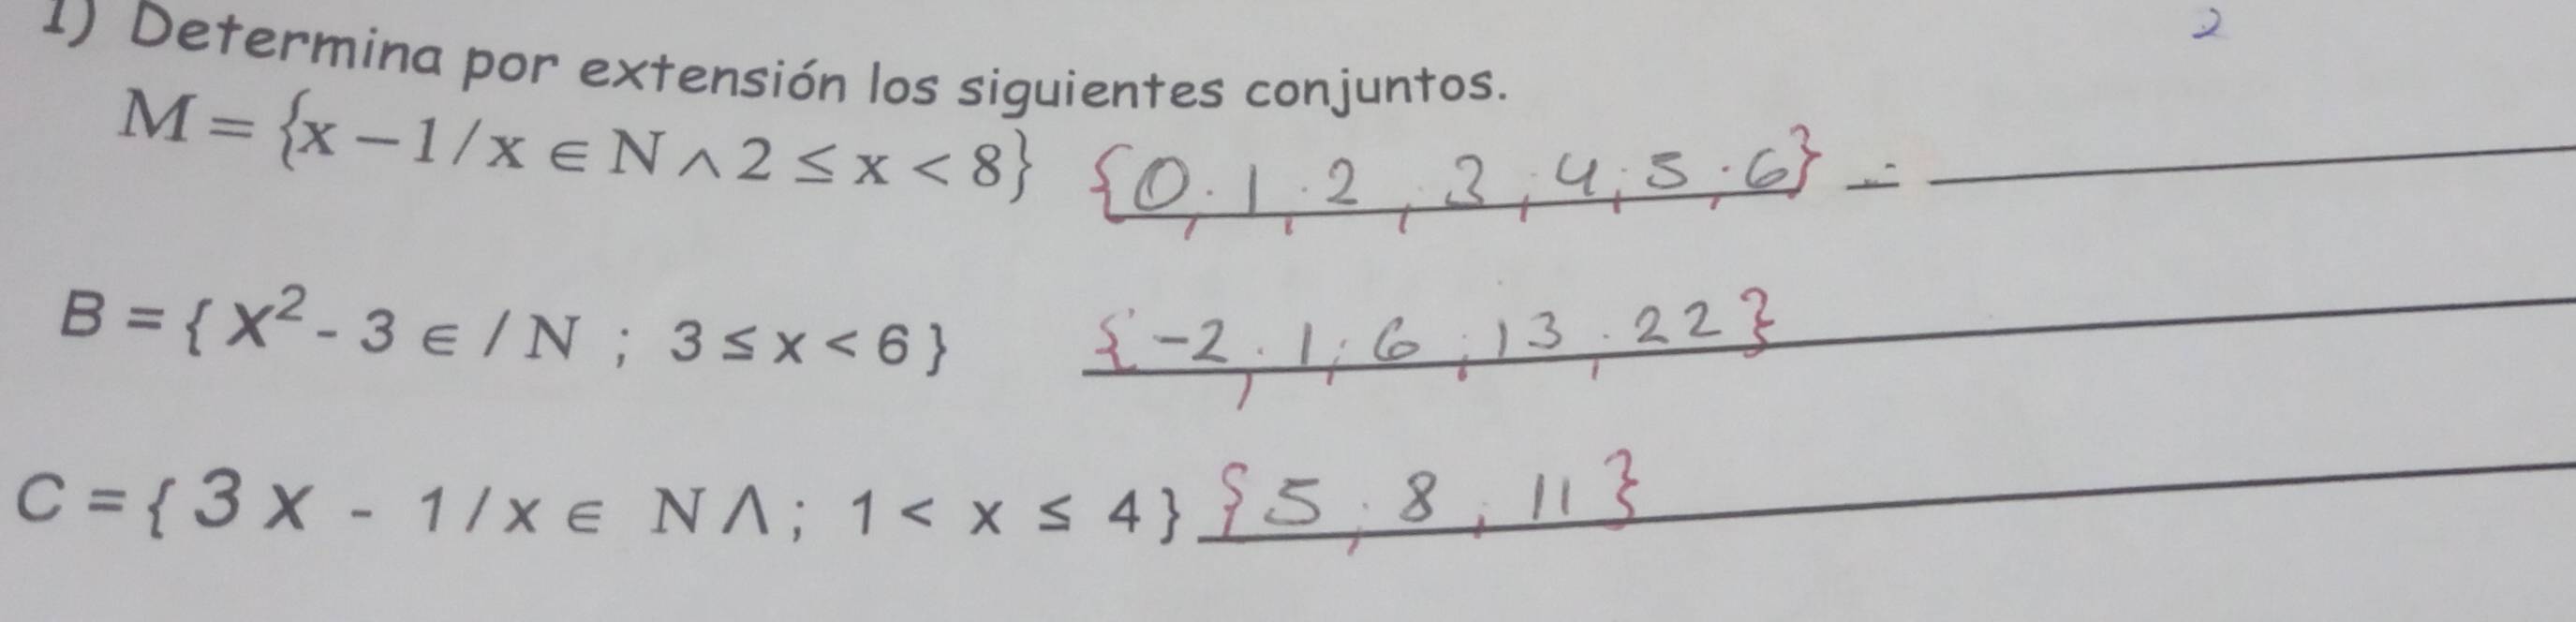 2
1) Determina por extensión los siguientes conjuntos.
M = {x – 1/x ∈ N ∧ 2 ≤ x < 8} {0, 1, 2, 3, 4, 5, 6}
B = { X² - 3 ∈ / N ; 3 ≤ x < 6 } {-2, 1, 6, 13, 22}
C = { 3 X - 1 / x ∈ N Λ ; 1 < x ≤ 4 } {5, 8, 11}